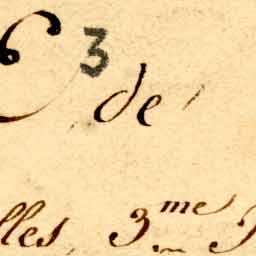 3 de
lles, 3.me